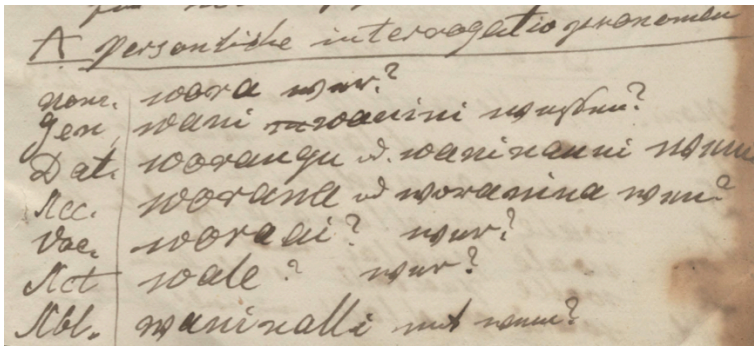 A persönliche interrogativpronomen
nom. wora wer?
Gen, wani wanini wessen?
Dat. worangu od. waninanni wem
Acc. worana od woranina wen?
Voc. woraai? wer?
Act wale? wer?
Abl. waninalli mit wem?